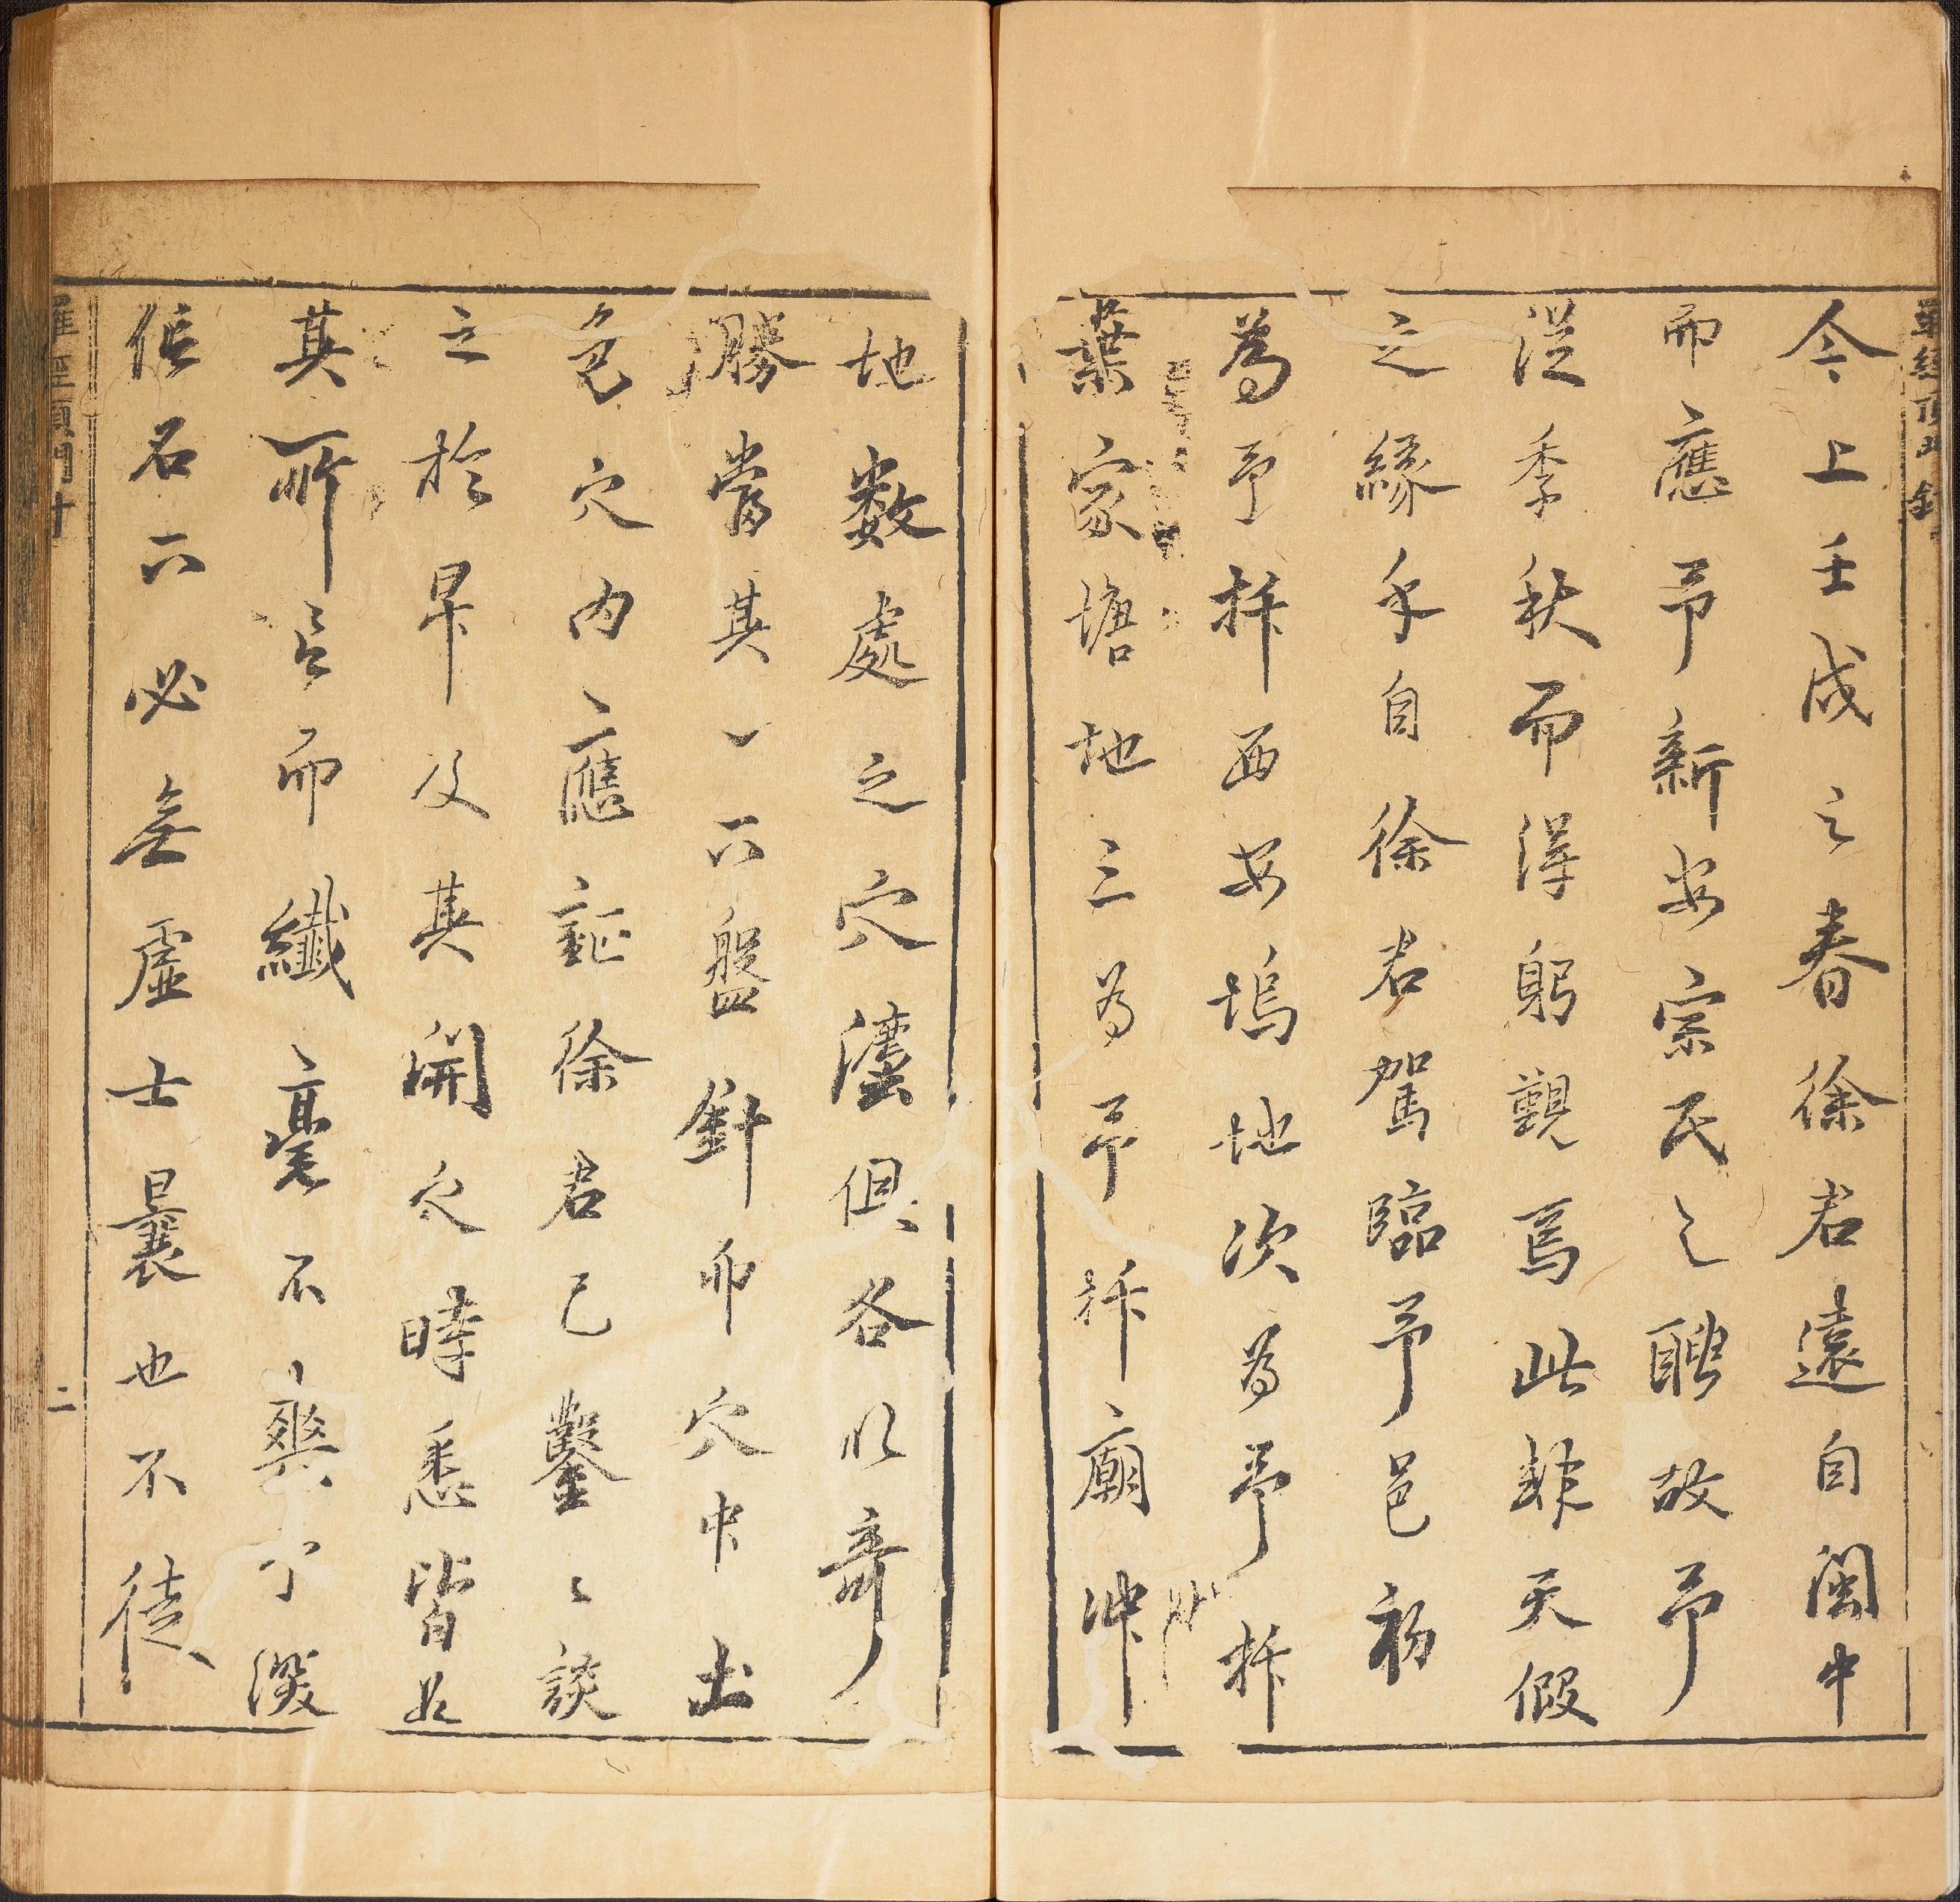 羅經頂門針
今上壬戌之春徐君遠自閩中
而應予新安宗氏之聘故予
從季秋而得躬覯焉此雖天假
之緣乎自徐君駕臨予邑初
為予拆西安塢地次為予拆
葉家塘地三為予拆廟冲
地數處之穴法俱各以奇
勝嘗其一下盤針卯穴中土
色穴內之應証徐君已鑿鑿談
之於早及其開穴時悉皆如
其所言而纖毫不爽予深
信名下必無虛士曩也不徒
羅經頂門針
二